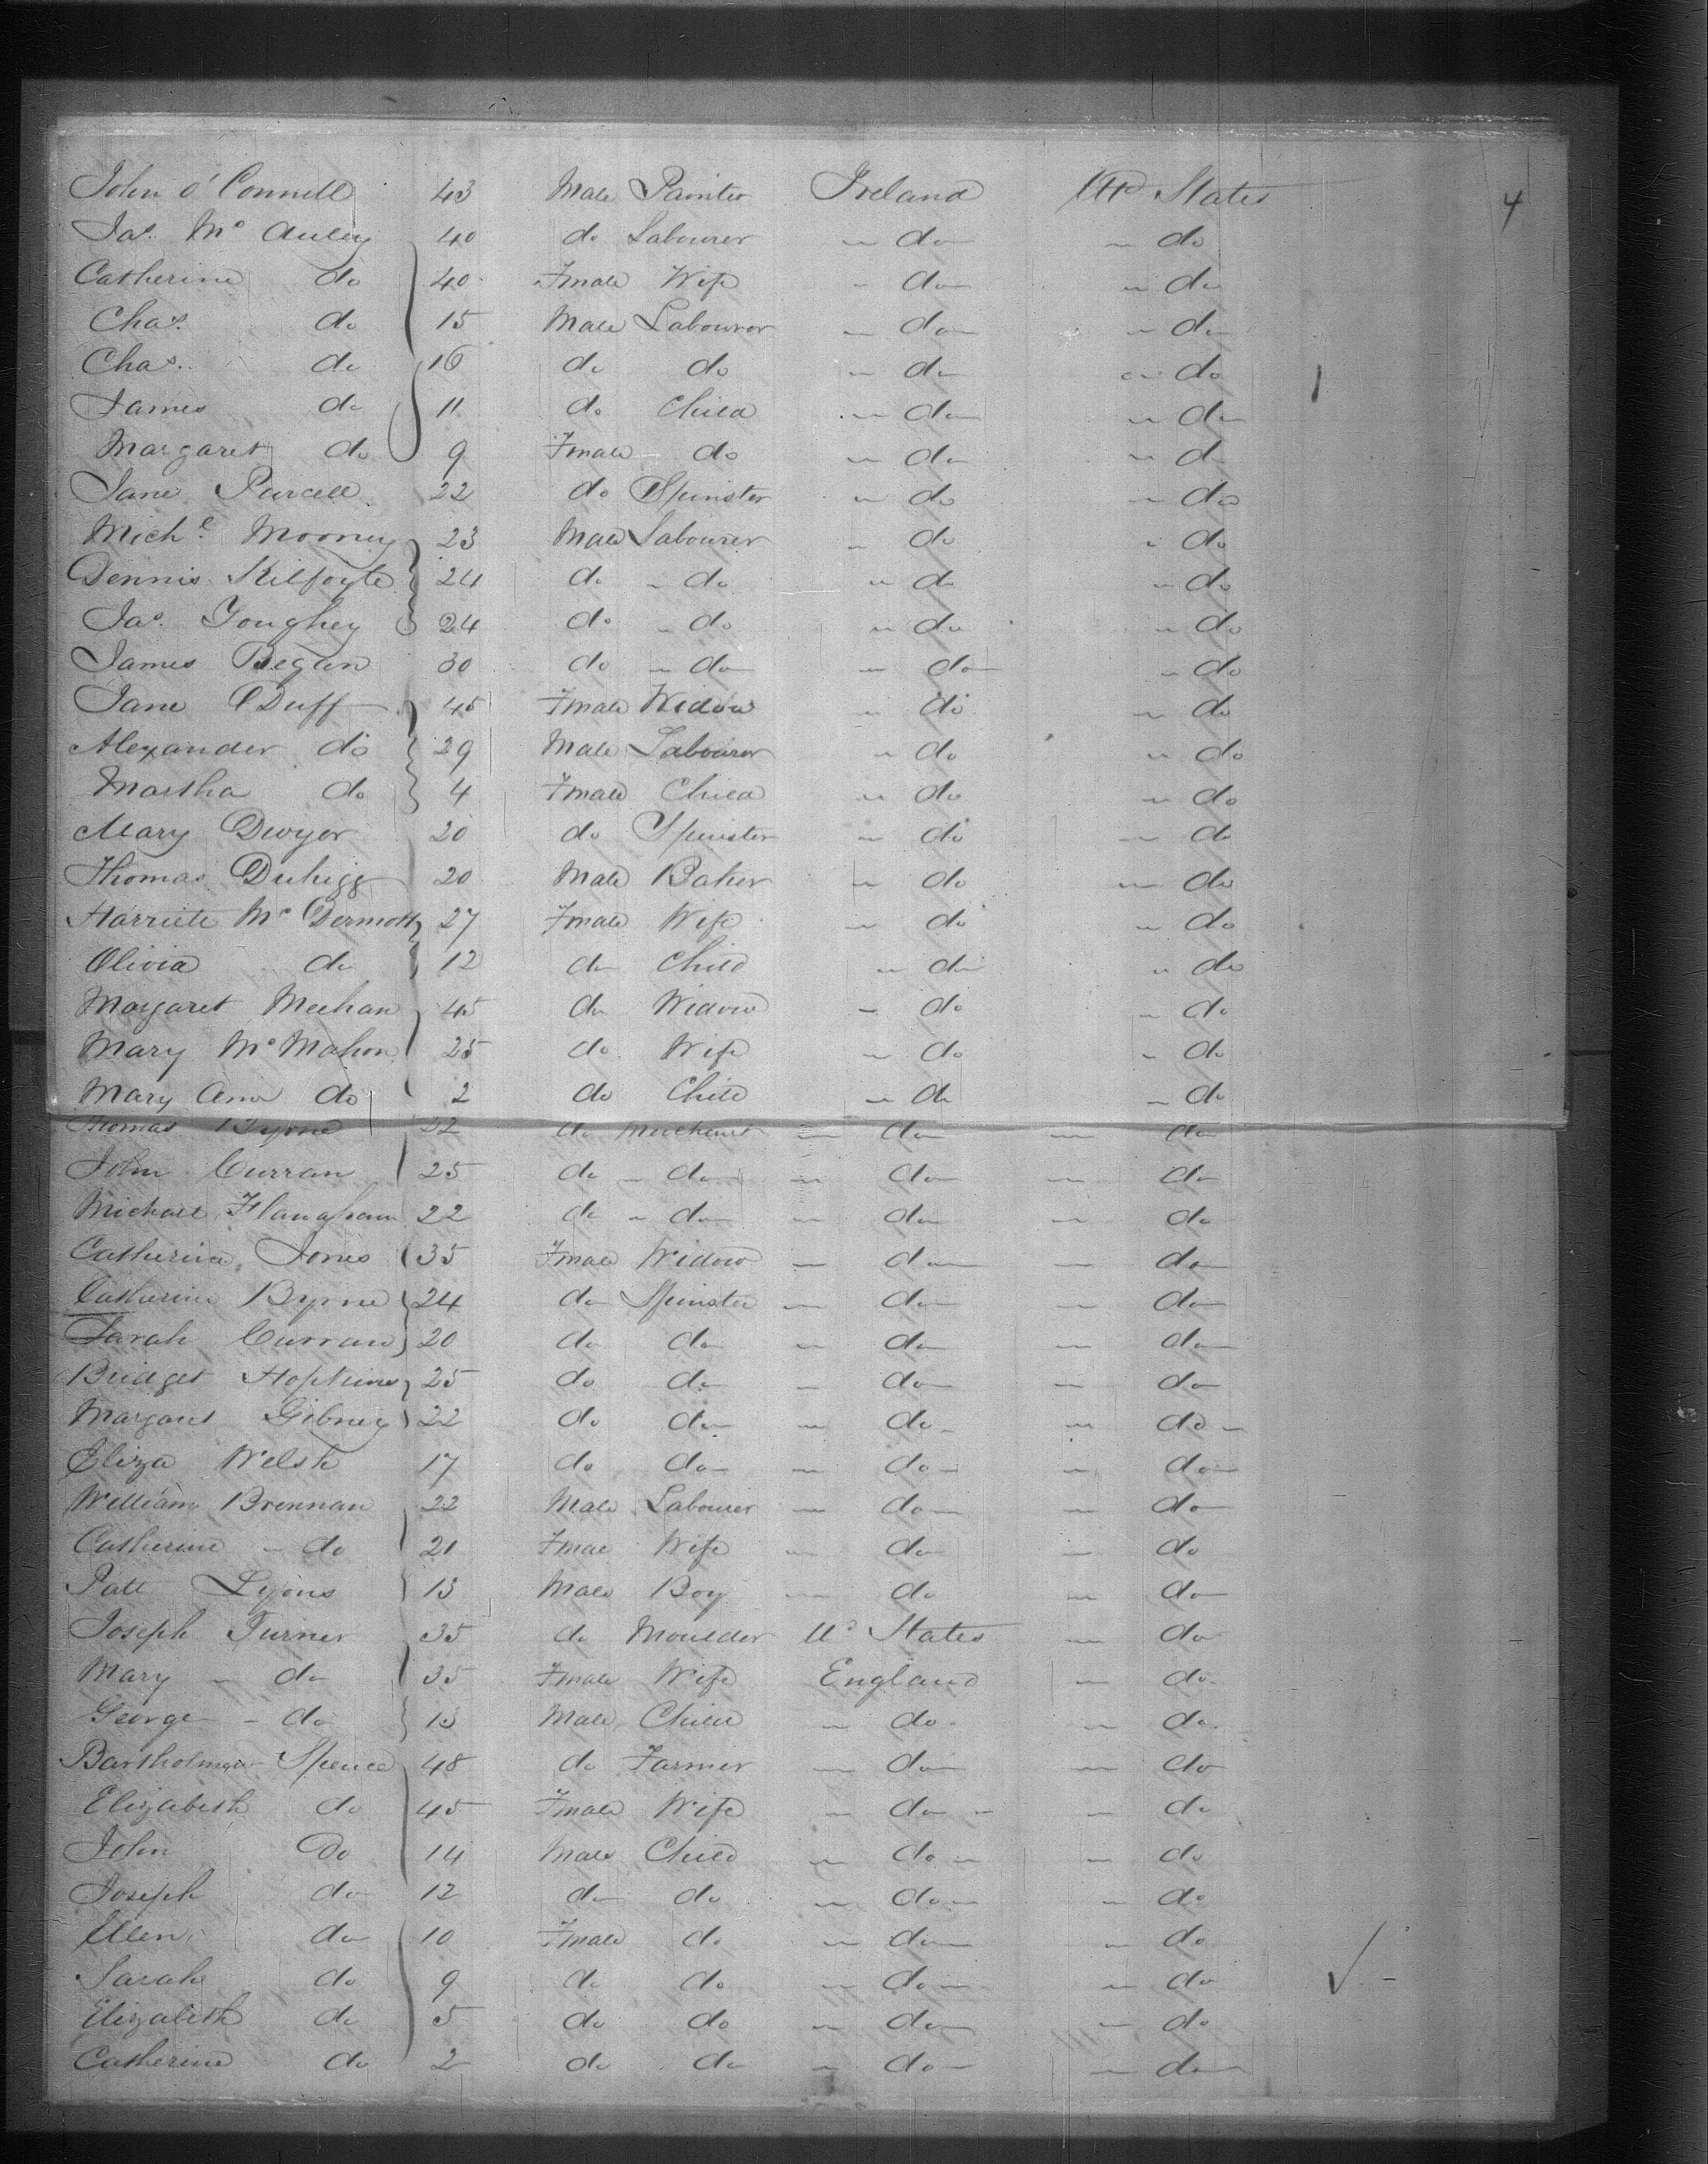 John O'Connell 43 Male Painter Ireland Ud States 4
Jas. Mc Auley 40 do Labourer " do " do
Catherine do 40 Fmale Wife " do " do
Chas. do 15 Male Labourer " do " do
Chas. do 16 do do " do " do
James do 11 do Child " do " do
Margaret do 9 Fmale do " do " do
Jane Purcell 22 do Spinster " do " do
Michl. Mooney 23 Male Labourer " do " do
Dennis Kilfoyle 24 do " do " do " do
Jas. Goughey 24 do " do " do " do
James Began 30 do " do " do " do
Jane Duff 45 Fmale Widow " do " do
Alexander do 29 Male Labourer " do " do
Martha do 4 Fmale Child " do " do
Mary Dwyer 20 do Spinster " do " do
Thomas Duhigg 20 Male Baker " do " do
Harriete Mc Dermott 27 Fmale Wife " do " do
Olivia do 12 do Child " do " do
Margaret Meehan 45 do Widow " do " do
Mary Mc Mahon 25 do Wife " do " do
Mary Ann do 2 do Child " do " do
Thomas Byrne 22 do Mechanic " do " do
John Curran 25 do " do " do " do
Michael Flanaham 22 do " do " do " do
Catherine Jones 35 Fmale Widow " do " do
Catherine Byrne 24 do Spinster " do " do
Sarah Curran 20 do do " do " do
Bridget Hopkins 25 do do " do " do
Margaret Gibney 22 do do " do " do
Eliza Welsh 17 do do " do " do
William Brennan 22 Male Labourer " do " do
Catherine " do 21 Fmae Wife " do " do
Patt Lyons 13 Male Boy " do " do
Joseph Turner 35 do Moulder Ud States " do
Mary " do 35 Fmale Wife England " do
George " do 13 Male Child " do " do
Bartholmew Spence 48 do Farmer " do " do
Elizabeth do 45 Fmale Wife " do " do
John Do 14 Male Child " do " do
Joseph do 12 do do " do " do
Ellen do 10 Fmale do " do " do
Sarah do 9 do do " do " do
Elizabeth do 5 do do " do " do
Catherine do 2 do do " do " do